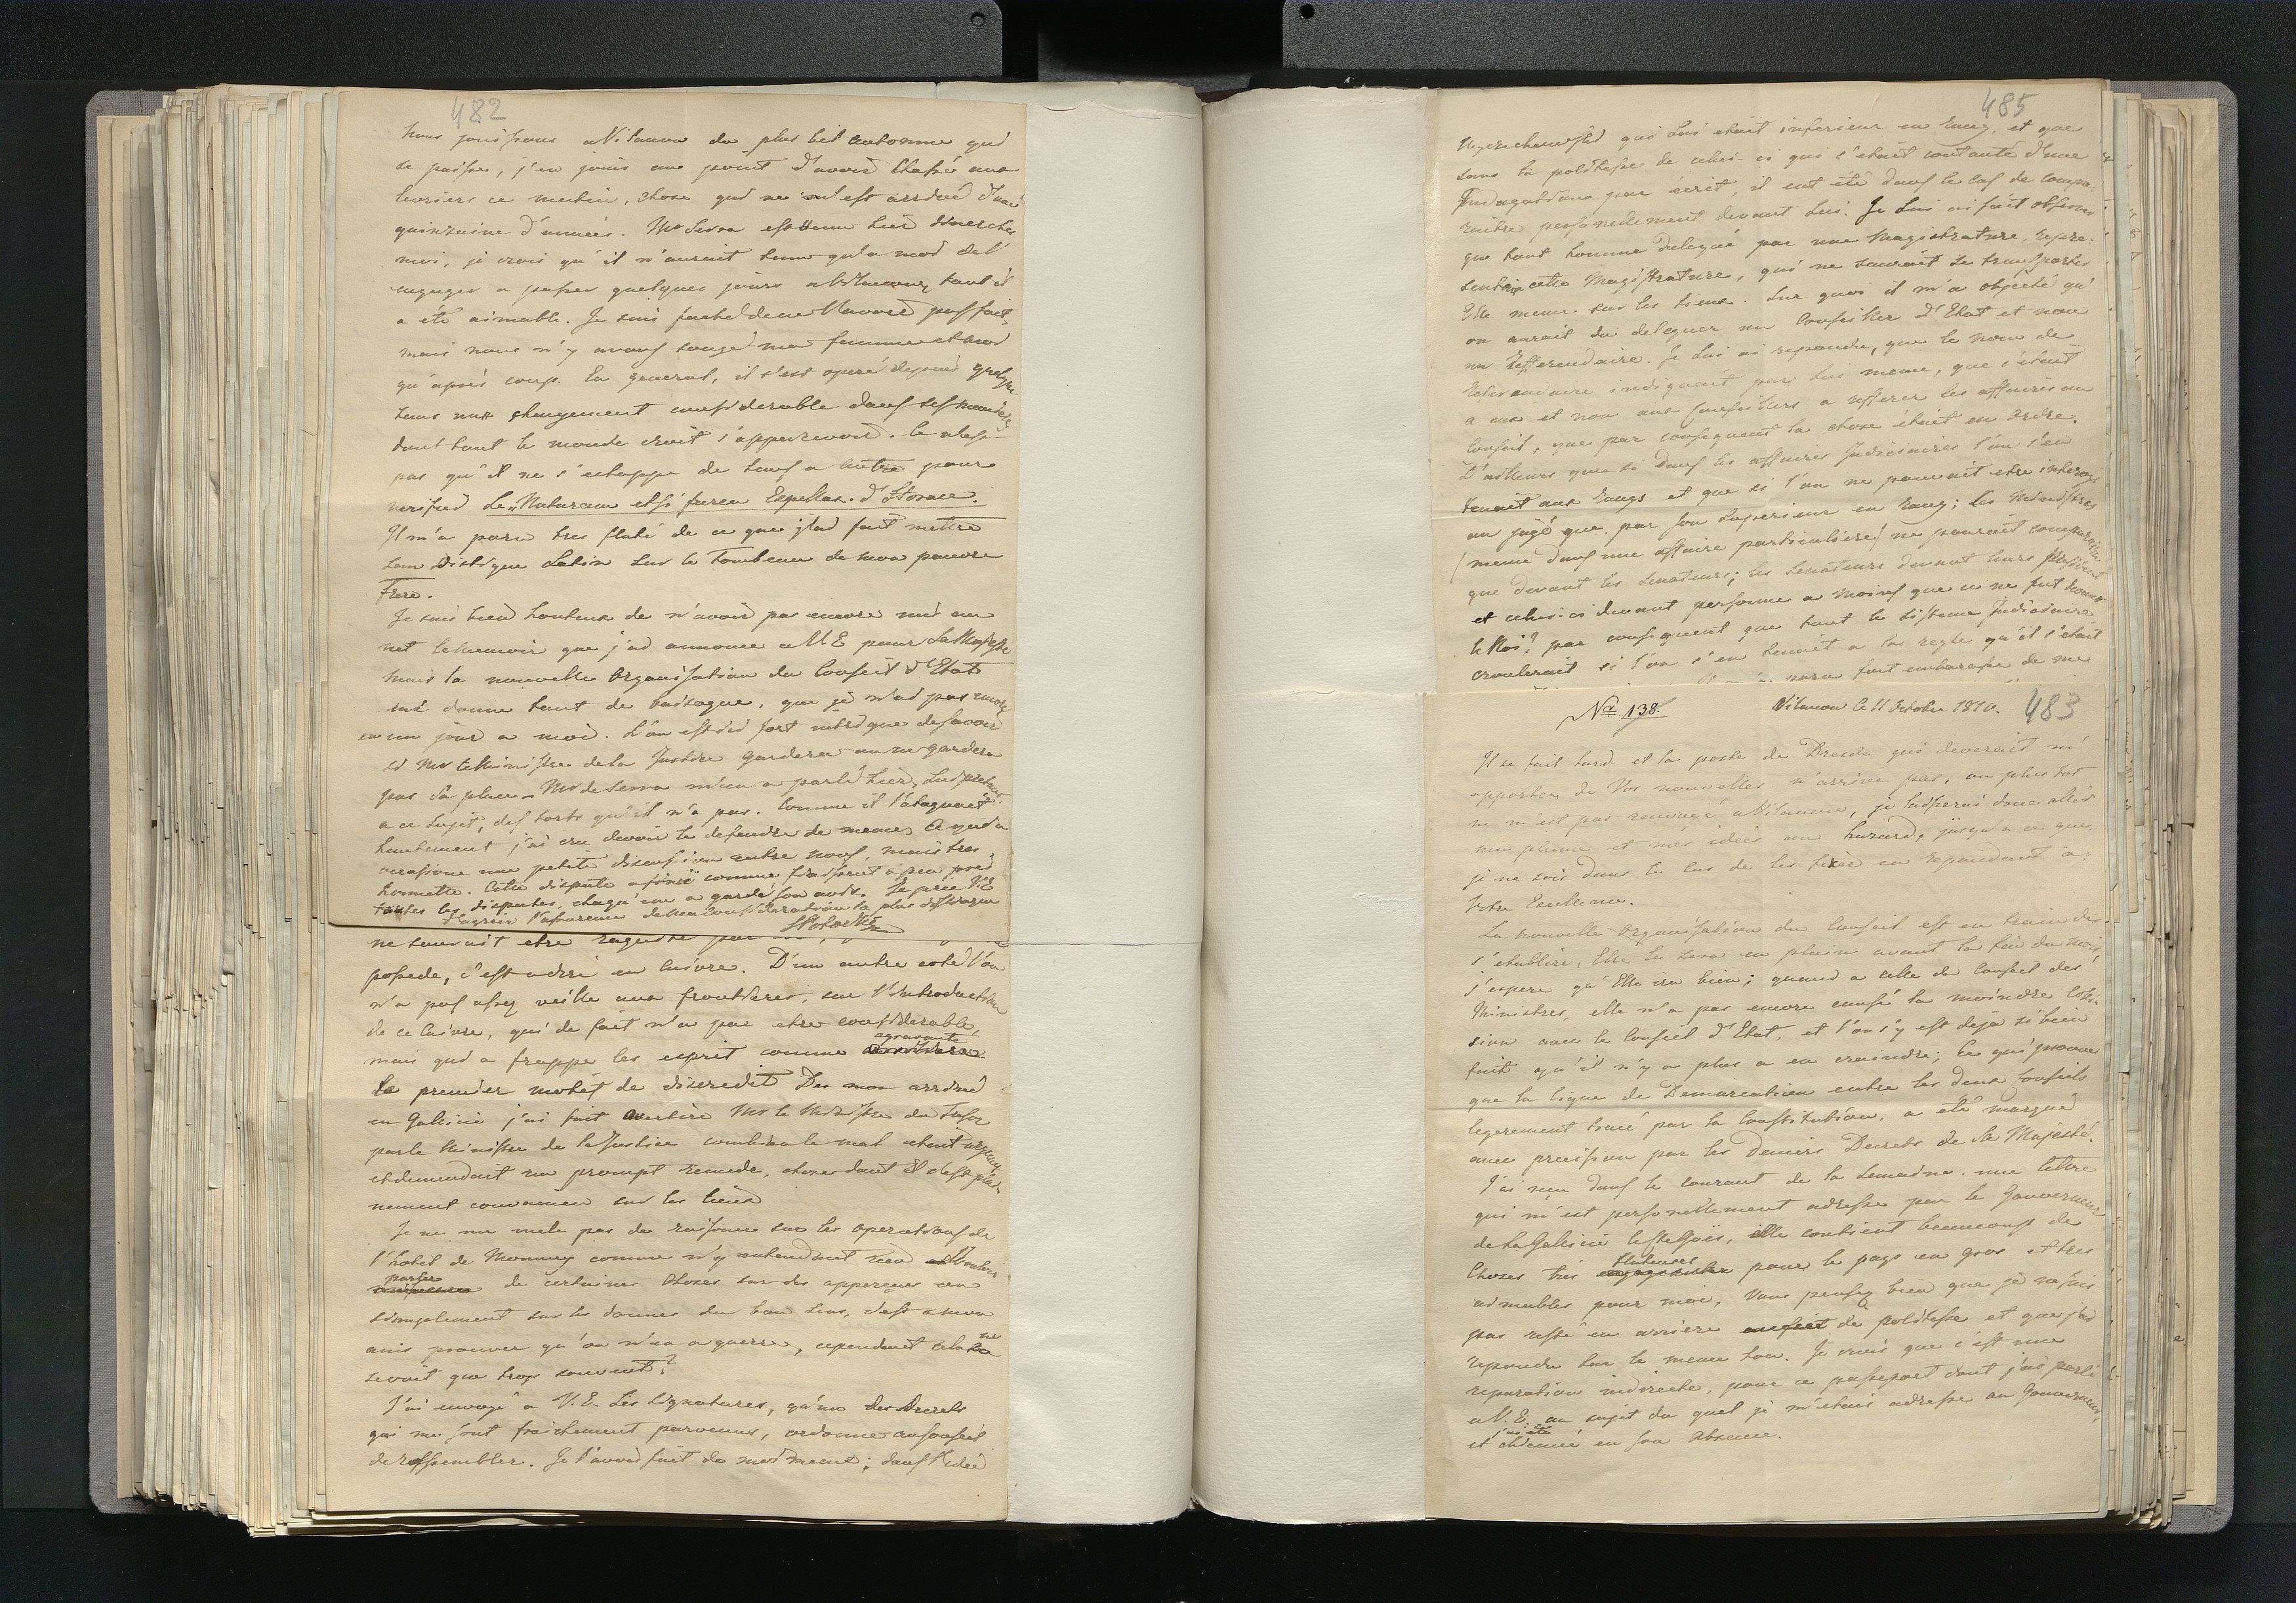 482
Nous jouissons a Vilanow du plus bel automne qui
se puisse, j'en jouis au point d'avoir chassé aux
levriers ce matin, chose qui ne m'est arrivé d'une
quinzaine d'années. Mr Serra est venu hier chercher
moi, je crois qu'il n'aurait tenu qu'a moi de l'
engager a passer quelques jours a Vilanow, tant il
a été aimable. Je suis faché de ne l'avoir pas fait,
mais nous n'y avons songé ma femme et moi
qu'après coup. En general, il s'est operé depuis quelque
tems un changement considerable dans ses manieres
dont tout le monde croit s'appercevoir. Ce n'est
pas qu'il ne s'echappe de tems a autre pour
verifier le "Naturam etsi furca Expellas. d'Horace.
Il m'a paru tres flaté de ce que j'ai fait mettre
son Distique Latin sur le Tombeau de mon pauvre
Frere.
Je suis bien honteux de n'avoir pas encore mis au
net le memoir que j'ai annoncé a V.E pour Sa Majesté
mais la nouvelle Organisation du Conseil d'Etat
me donne tant de besogne, que je n'ai pas encore
eu un jour a moi. L'on est ici fort intrigué de savoir
si Mr le Ministre de la Justice gardera ou ne gardera
pas sa place. Mr de Serra m'en a parlé hier,
a ce sujet, des torts qu'il n'a pas. Comme il l'ataquait
hautement j'ai cru devoir le defendre de meme; Ce qui a
occasioné une petite discussion entre nous, mais tres
honnette. Cette dispute a fini comme finissent a peu pres
toutes les disputes, chaqu'un a gardé son avis. Je prie V.E
d'agréer l'assurance de ma consideration la plus distinguée
SPotocki
ne saurait etre
possede, c'est adire en cuivre. D'un autre coté l'on
n'a pas assez veillé aux frontieres, sur l'introduction
de ce cuivre, qui de fait n'a pas etre considerable,
agravante
mais qui a frappé les esprit comme
le premier motif de discredit Des mon arrivé
en Galicie j'ai fait avertire Mr le Ministre du Tresor
par le Ministre de la Justice combien le mal etait urgent
et demandait un prompt remede, chose dont il s'est plei-
nement convaincu sur les lieux
Je ne me mele pas de raisoner sur les operations de
l'hotel de Monnoy comme n'y entendant rien Vouloir
parler
de certaines choses sur des apperçus ou
simplement sur les donnés du bon sens, c'est a mon
avis prouver qu'on n'en a guerre, cependant cela se
voit que trop souvent?
J'ai envoyé a V.E. les signatures, qu'un des Decrets
qui me sont fraichement parvenus, ordonne au Conseil
de rassembler. Je l'avois fait de moi meme; dans l'idée
485
qui lui etait inferieur en rang, et que
sans la politesse de celui-ci qui s'etait contanté d'une
Indagation par écrit, il eut été dans le cas de compa-
raitre personellement devant lui. Je lui ai fait observer
que tout homme delegué par une Magistrature, repre-
sentait cette Magistrature, qui ne saurait se transporter
Elle meme sur les lieux. Sur quoi il m'a objecté qu'
on aurait du deleguer un Conseiller d'Etat et non
un Refferendaire. Je lui ai repondu, que le nom de
Referendaire indiquait par lui meme, que c'etait
a eux et non aux Conseillers a refferer les affaires au
Conseil, que par consequent la chose était en ordre.
D'ailleurs que si dans les affaires Judiciaires l'on s'en
tenait aux rangs et que si l'on ne pouvait etre interrogé
ou jugé que par son superieur en rang; les Ministres
(meme dans une affaire particuliere) ne pourait comparaitre
que devant les Senateurs; les Senateurs devant leurs president
et celui-ci devant personne a moins que ce ne fut devant
le Roi? par consequent que tout le sisteme judiciaire
croulerait si l'on s'en tenait a la regle qu'il s'etait
paru fort embarassé de me
No 138. Vilanow le 11 Octobre 1810. 483
Il se fait tard et la poste de Dresde qui deverait m'
apporter de Vos nouvelles n'arrive pas, ou plustot
ne m'est pas renvoyé a Vilanow, je laisserai donc aller
ma plume et mes idées au hazard, jusqu'a ce que
je ne sois dans le cas de les fixer en repondant a
Votre Excellence.
La nouvelle Organisation du Conseil est en train de
s'etablire, Elle le sera en plein avant la fin du mois,
j'espere qu'Elle ira bien; quand a celle du Conseil des
Ministres, elle n'a pas encore causé la moindre Coli-
sion avec le Conseil d'Etat, et l'on s'y est deja si bien
fait qu'il n'y a plus a en craindre; Ce qui prouve
que la ligne de Demarcation entre les deux Conseils
legerement tracé par la Constitution, a été marqué
avec precision par les Deniers Decrets de Sa Majesté.
J'ai reçu dans le courant de la Semaine une lettre
qui m'est personellement adressé par le Gouverneur
de la Galicie le Cte Goës, elle contient beaucoup de
flateuses
choses très pour le pays en gros et tres
aimables pour moi, Vous pensez bien que je ne suis
pas resté en arriere de politesse et que j'ai
repondu sur le meme ton. Je crois que c'est une
reparation indirecte, pour ce passeport dont j'ai parlé
a V.E. au sujet du quel je m'étais adressé au Gouverneur,
j'ai été
et chicané en son absence.